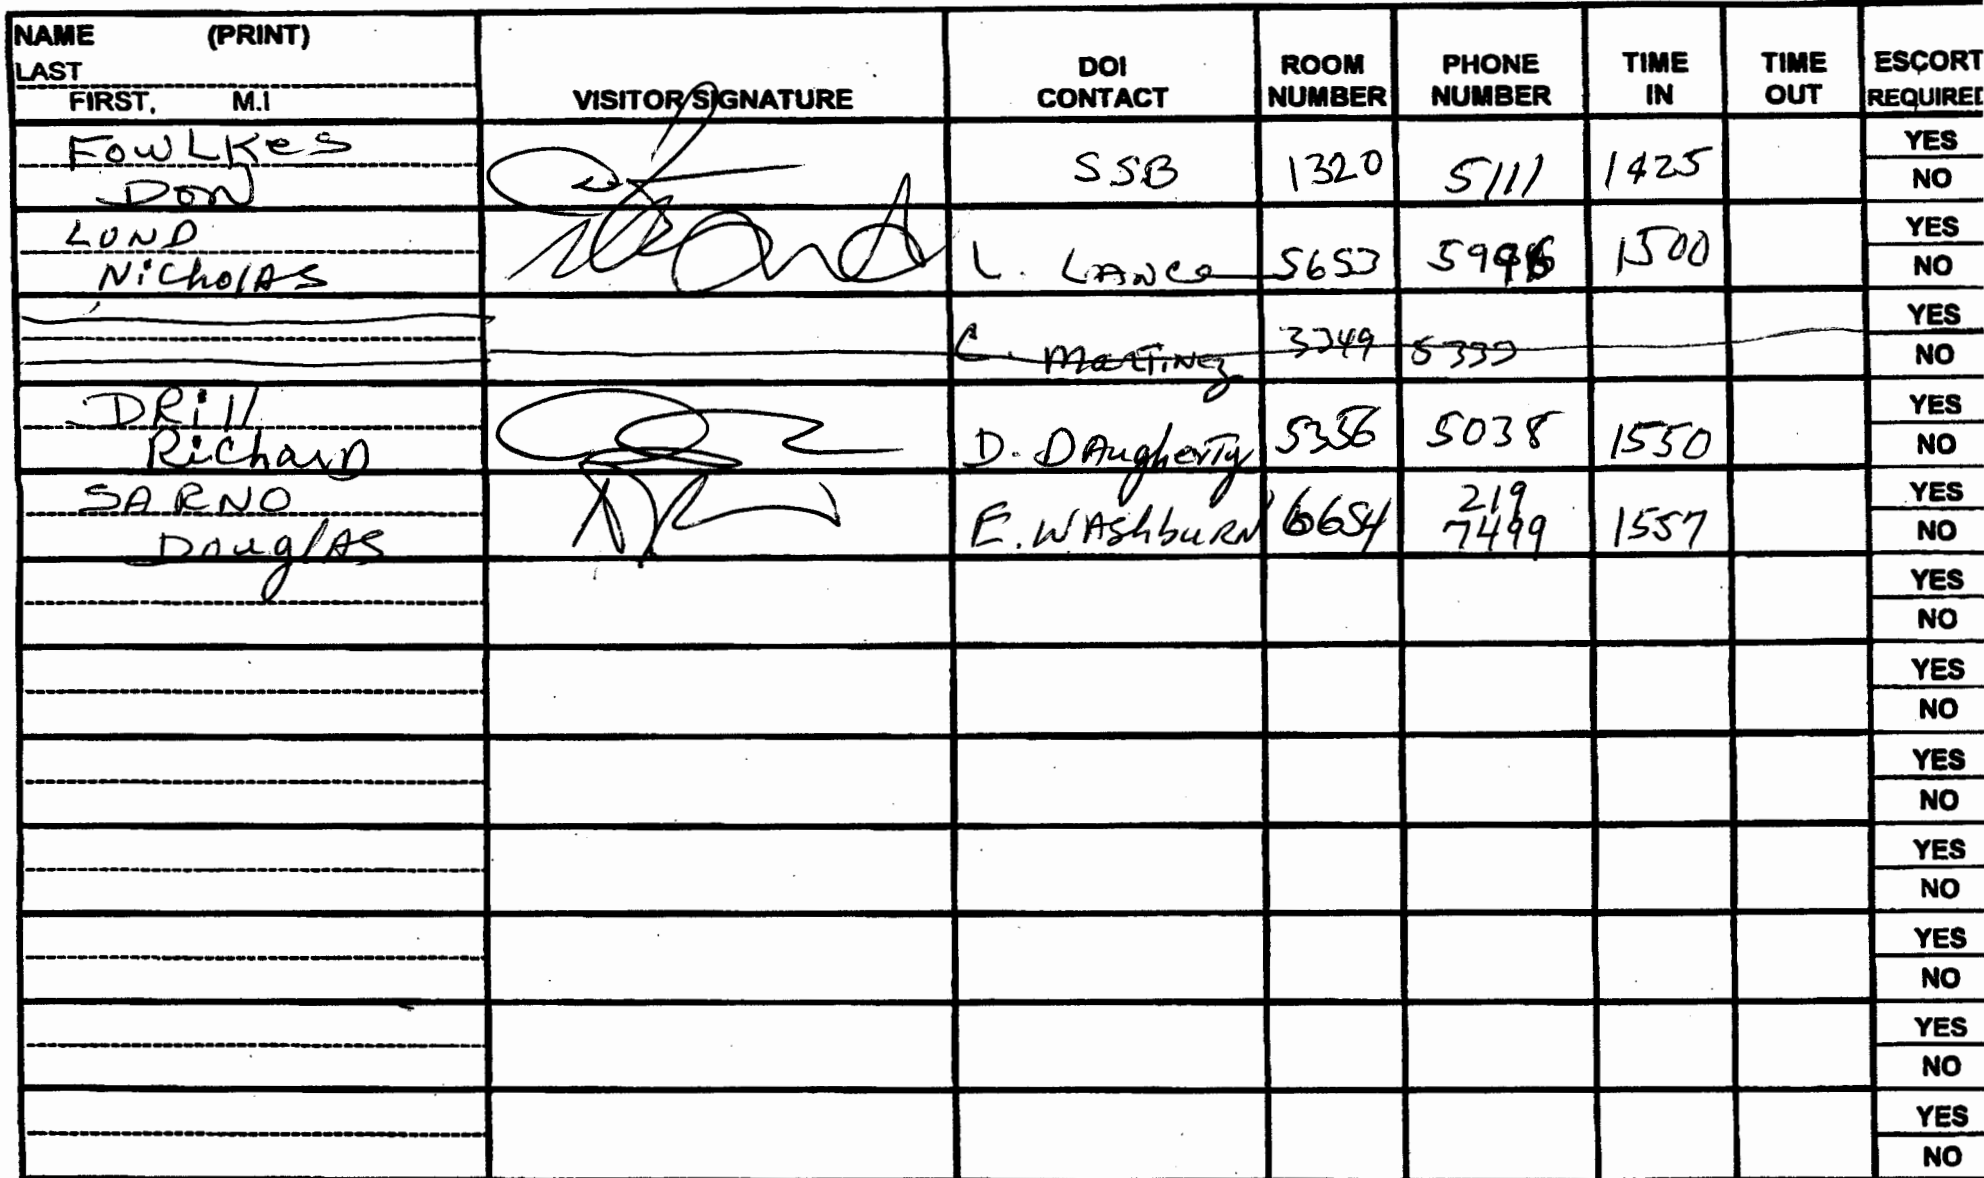 NAME (PRINT)
LAST
FIRST, M.I
VISITOR SIGNATURE
DOI
CONTACT
ROOM
NUMBER
PHONE
NUMBER
TIME
IN
TIME
OUT
ESCORT
REQUIRED
FOWLKES
DON
SSB
1320
5111
1425
YES
NO
LUND
NicholAS
L. LANCe
5653
1500
YES
NO
C. MartiNez
3349
5333
YES
NO
DRill
RichaRD
D. DAugherTy
5356
5038
1550
YES
NO
SARNO
DouglAS
E. WAShbuRN
6654
219
7499
1557
YES
NO
YES
NO
YES
NO
YES
NO
YES
NO
YES
NO
YES
NO
YES
NO